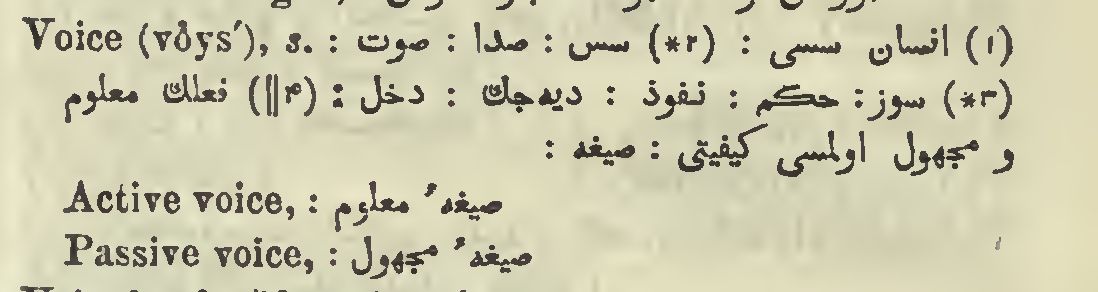 Voice (vŏys′), s. : (١) انسان سسی : (*٢) سس : صدا : صوت :
(*٣) سوز : حکم : نفوذ : دیه‌جك : دخل : (‖٣) فعلك معلوم
و مجهول اولمسی کیفیتی : صیغه :
Active voice, : صیغهٔ معلوم
Passive voice, : صیغهٔ مجهول